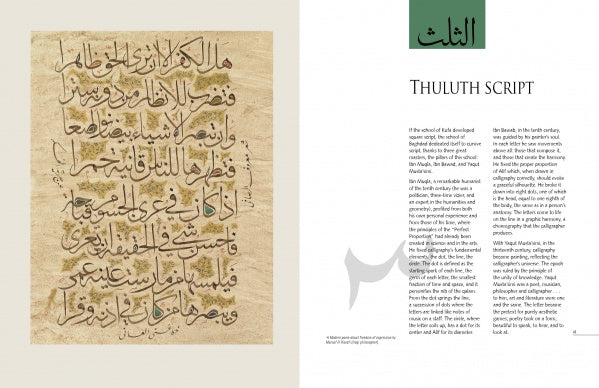 هل الكفر الا ان ترى الحق ظاهرا
فتضرب للانظار من دونه سترا
وان تبصر الاشياء بيضا نواصعا
في عري الجسوم
فاحسن شيء في الحقيقة ان تعرى
الثلث
THULUTH SCRIPT
If the school of Kufa developed
square script, the school of
Baghdad dedicated itself to cursive
script, thanks to three great
masters, the pillars of this school:
Ibn Muqla, Ibn Bawab, and Yaqut
Musta'simi.
Ibn Muqla, a remarkable humanist
of the tenth century (he was a
politician, three-time vizier, and
an expert in the humanities and
geometry), profited from both
his own personal experience and
from those of his time, where
the principles of the "Perfect
Proportion" had already been
created in science and in the arts.
He fixed calligraphy's fundamental
elements: the dot, the line, the
circle. The dot is defined as the
starting spark of each line, the
germ of each letter, the smallest
fraction of time and space, and it
personifies the nib of the qalam.
From the dot springs the line,
a succession of dots where the
letters are linked like notes of
music on a staff. The circle, where
the letter coils up, has a dot for its
center and Alif for its diameter.
Ibn Bawab, in the tenth century,
was guided by his painter's soul.
In each letter he saw movements
above all: those that compose it,
and those that create the harmony.
He fixed the proper proportion
of Alif which, when drawn in
calligraphy correctly, should evoke
a graceful silhouette. He broke it
down into eight dots, one of which
is the head, equal to one eighth of
the body, the same as in a person's
anatomy. The letters come to life
on the line in a graphic harmony, a
choreography that the calligrapher
produces.
With Yaqut Musta'simi, in the
thirteenth century, calligraphy
became painting, reflecting the
calligrapher's universe. The epoch
was ruled by the principle of
the unity of knowledge. Yaqut
Musta'simi was a poet, musician,
philosopher and calligrapher . . .
to him, art and literature were one
and the same. The letter became
the pretext for purely aesthetic
games; poetry took on a form,
beautiful to speak, to hear, and to
look at.